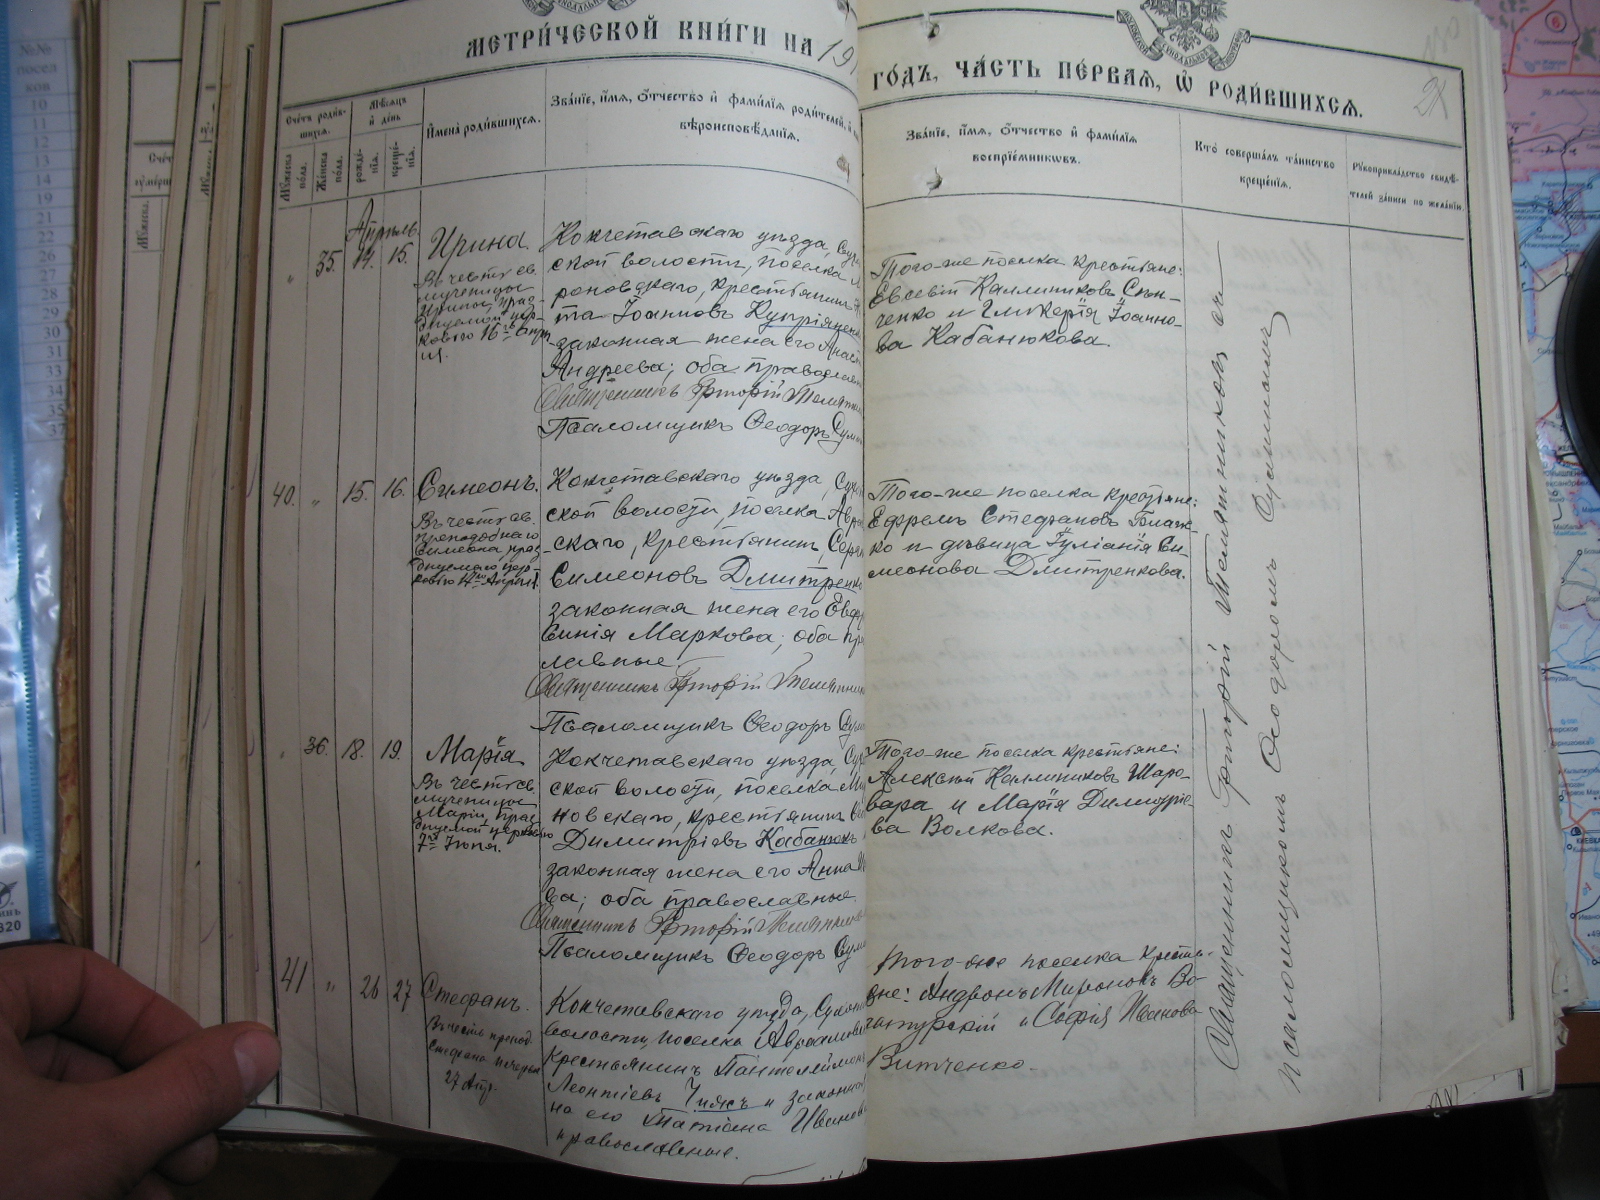 МЕТРИЧЕСКОЙ КНИГИ НА 191
ГОДЪ, ЧАСТЬ ПЕРВАЯ, Ѿ РОДИВШИХСЯ.
Счетъ родив-
шихся.
Мѣсяцъ
и день
Мужеска
пола.
Женска
пола.
рожде-
нія.
креще-
нія.
Имена родившихся.
Званіе, имя, отчество и фамилія родителей, и
вѣроисповѣданія.
Званіе, имя, отчество и фамилія
воспріемниковъ.
Кто совершалъ таинство
крещенія.
Рукоприкладство свидѣ-
телей записи по желанію.
Апрѣль
" 35. 14. 15.
Ирина.
Въ честь св.
мученицы
Ирины, праз-
днуемой цер-
ковію 16го Апрѣ-
ля.
Кокчетавскаго уѣзда, Сух
ской волости, поселка
роновскаго, крестьянинъ
та Іоанновъ Купріяненк
законная жена его Анаст
Андреева; оба православн
Священникъ Григорій Темятник
Псаломщикъ Ѳеодоръ Сум
Того-же поселка крестьяне:
Евсевій Каллиниковъ Сен-
ченко и Гликерія Іоанно-
ва Кабанюкова.
40. " 15. 16.
Симеонъ.
Въ честь св.
преподобнаго
Симеона, праз-
днуемаго цер-
ковію Апрѣля
Кокчетавскаго уѣзда, Сухо
ской волости, поселка Авра
скаго, крестьянинъ Серг
Симеоновъ Дмитренко
законная жена его Евфро
синія Маркова; оба пра
лавные.
Священникъ Григорій Темятник
Псаломщикъ Ѳеодоръ Сум
Того-же поселка крестьяне:
Ефремъ Стефановъ Блаж-
ко и дѣвица Іуліанія Си-
меонова Дмитренкова.
" 36. 18. 19.
Марія
Въ честь св.
мученицы
Маріи, праз-
днуемой церковію
7го Іюня.
Кокчетавскаго уѣзда, Сух
ской волости, поселка Ми
новскаго, крестьянинъ
Димитріевъ Кабанюкъ
законная жена его Анна
ва; оба православные.
Священникъ Григорій Темятник
Псаломщикъ Ѳеодоръ Сум
Того-же поселка крестьяне:
Алексѣй Каллиниковъ Шаро-
вара и Марія Димитріе-
ва Волкова.
41 " 26 27
Стефанъ.
Въ честь препод.
Стефана
27 Апр.
Кокчетавскаго уѣзда, Сухот
волости, поселка Авраамовск
крестьянинъ Пантелеймон
Леонтіевъ Чижъ и законная
на его Татіана Иванов
православные.
Того-же поселка кресть-
яне: Андронъ Мироновъ Во-
чатурскій и Софія Иванова
Витченко.
Священникъ Григорій Темятниковъ съ
Псаломщикомъ Ѳеодоромъ